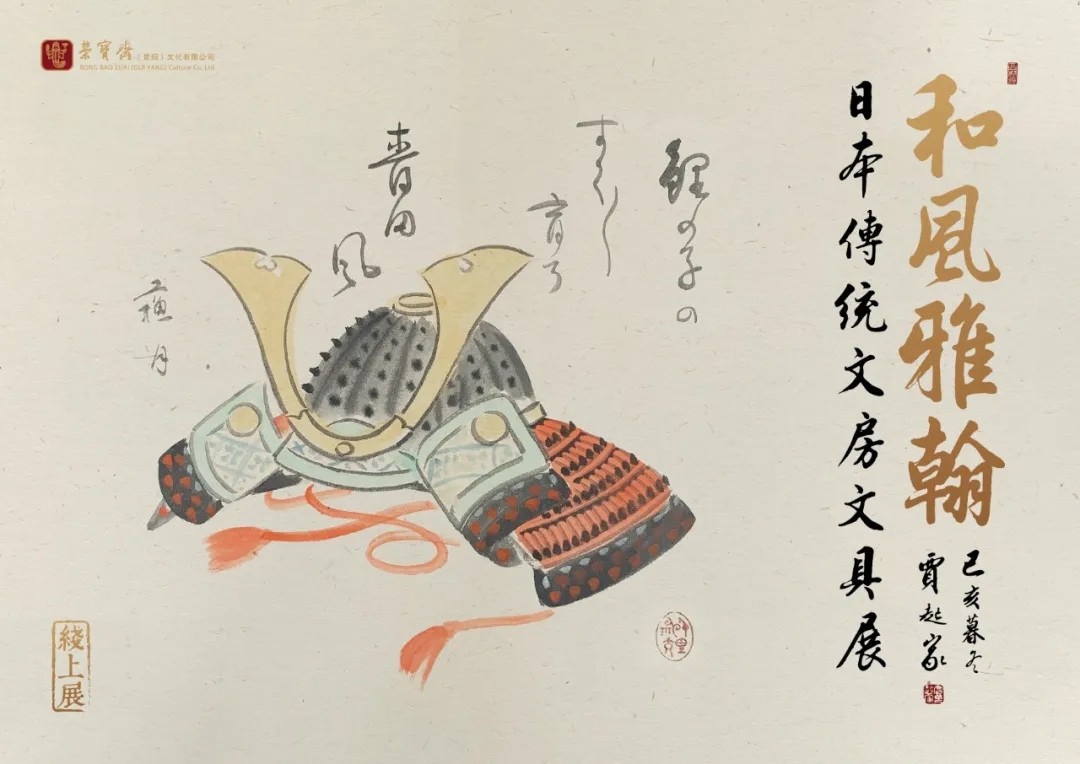 榮寶齋(贵阳)文化有限公司
RONG BAO ZHAI (GUI YANG) Culture Co., Ltd
和風雅翰
日本傳統文房文具展
己亥暮冬
賈起家
鯉の子の
すく〳〵
育つ
青田
風
綫上展